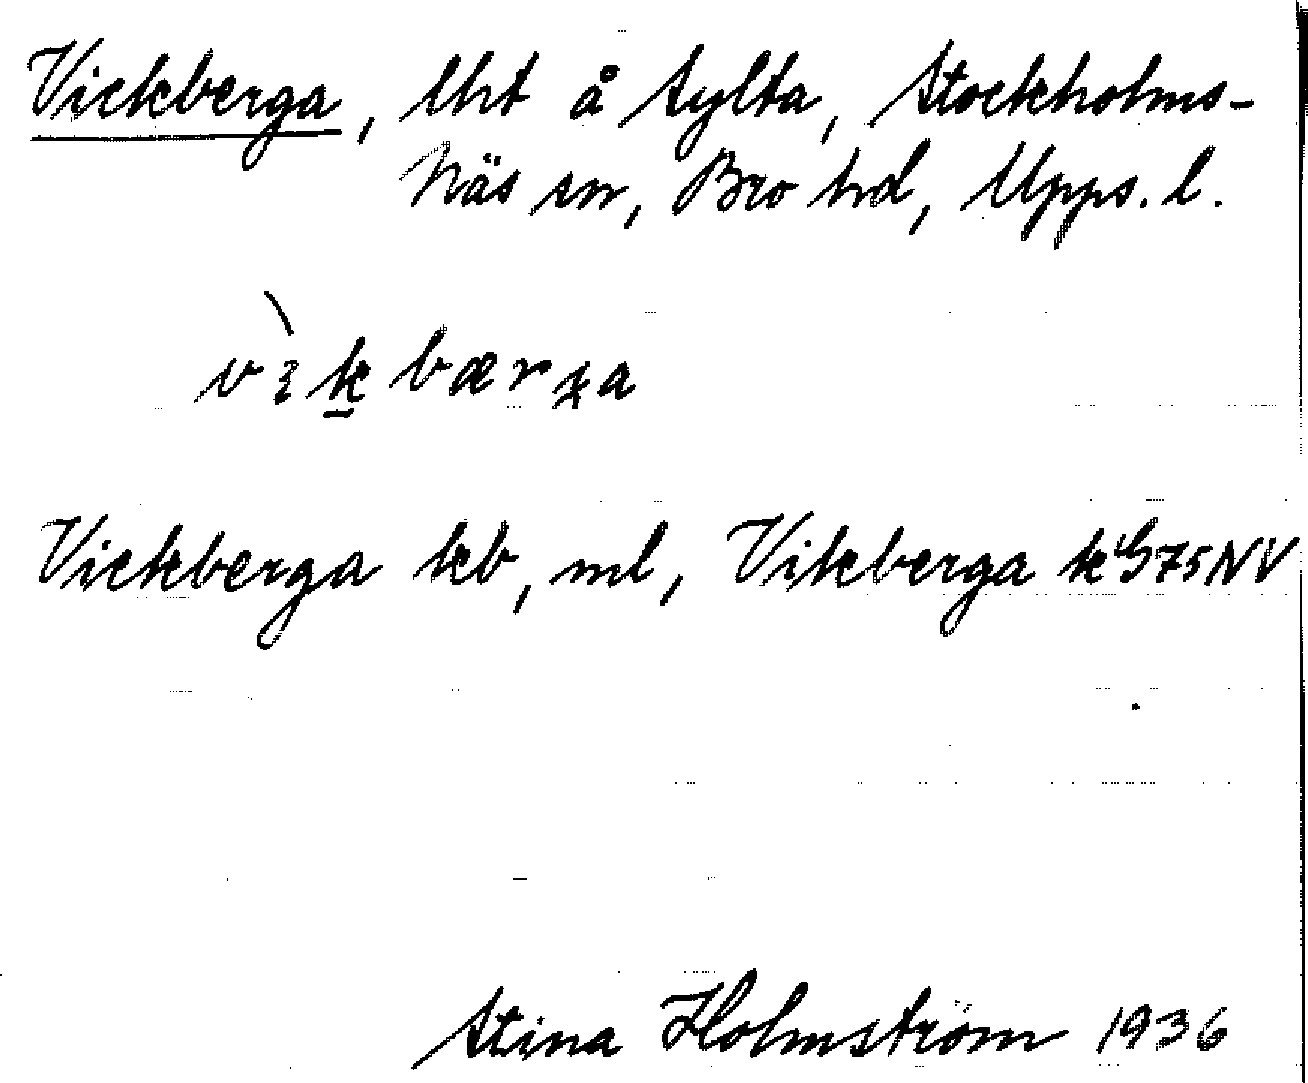 Vickberga, lht å Sylta, Stockholms-
Näs sn, Bro hd, Upps. l.
Vickberga kb, ml, Vikberga k G75NV
Stina Holmström 1936